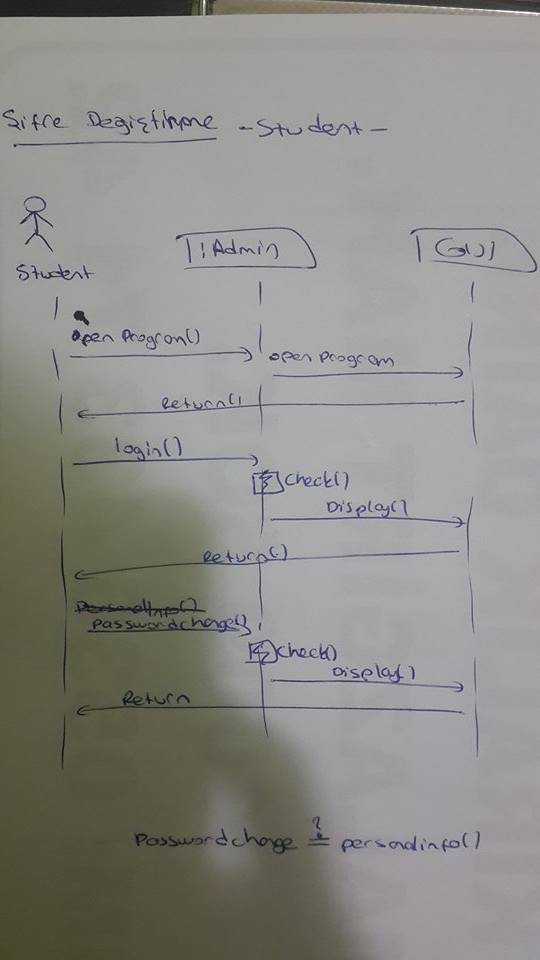 Şifre Değiştirme - Student -
Student
:Admin
GUI
open Program()
open program
Return()
login()
Check()
Display()
Return()
PersonalInfo()
Passwordchange()
Check()
Display()
Return
Passwordchange ?= personalinfo()